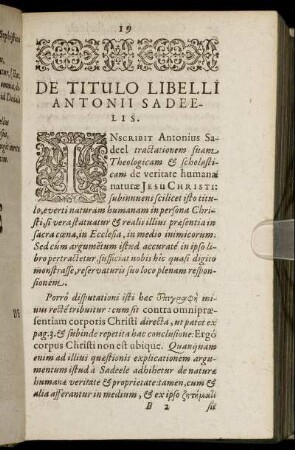 19
DE TITULO LIBELLI
ANTONII SADEE-
LIS.
INSCRIBIT Antonius Sa-
deel tractationem suam
Theologicam & scholasti-
cam de veritate humanæ
naturæ JESU CHRISTI:
subinnuens scilicet isto titu-
lo, everti naturam humanam in persona Chri-
sti, si vera statuatur & realis illius præsentia in
sacra cœna, in Ecclesia, in medio inimicorum.
Sed cùm argumẽtum istud accuratè in ipso li-
bro pertractetur, sufficiat nobis hîc quasi digito
monstrasse, reservaturis suo loco plenam respon-
sionem.
Porrò disputationi isti hæc ἐπιγραφὴ mi-
nus rectè tribuitur: cum sit contra omnipræ-
sentiam corporis Christi directa, ut patet ex
pag. 3. & subinde repetita hæc conclusione: Ergò
corpus Christi non est ubique. Quanquam
enim ad illius quæstionis explicationem argu-
mentum istud à Sadeele adhibetur de naturæ
humanæ veritate & proprietate: tamen, cum &
alia afferantur in medium, & ex ipso ζητήματι
B 2 sit